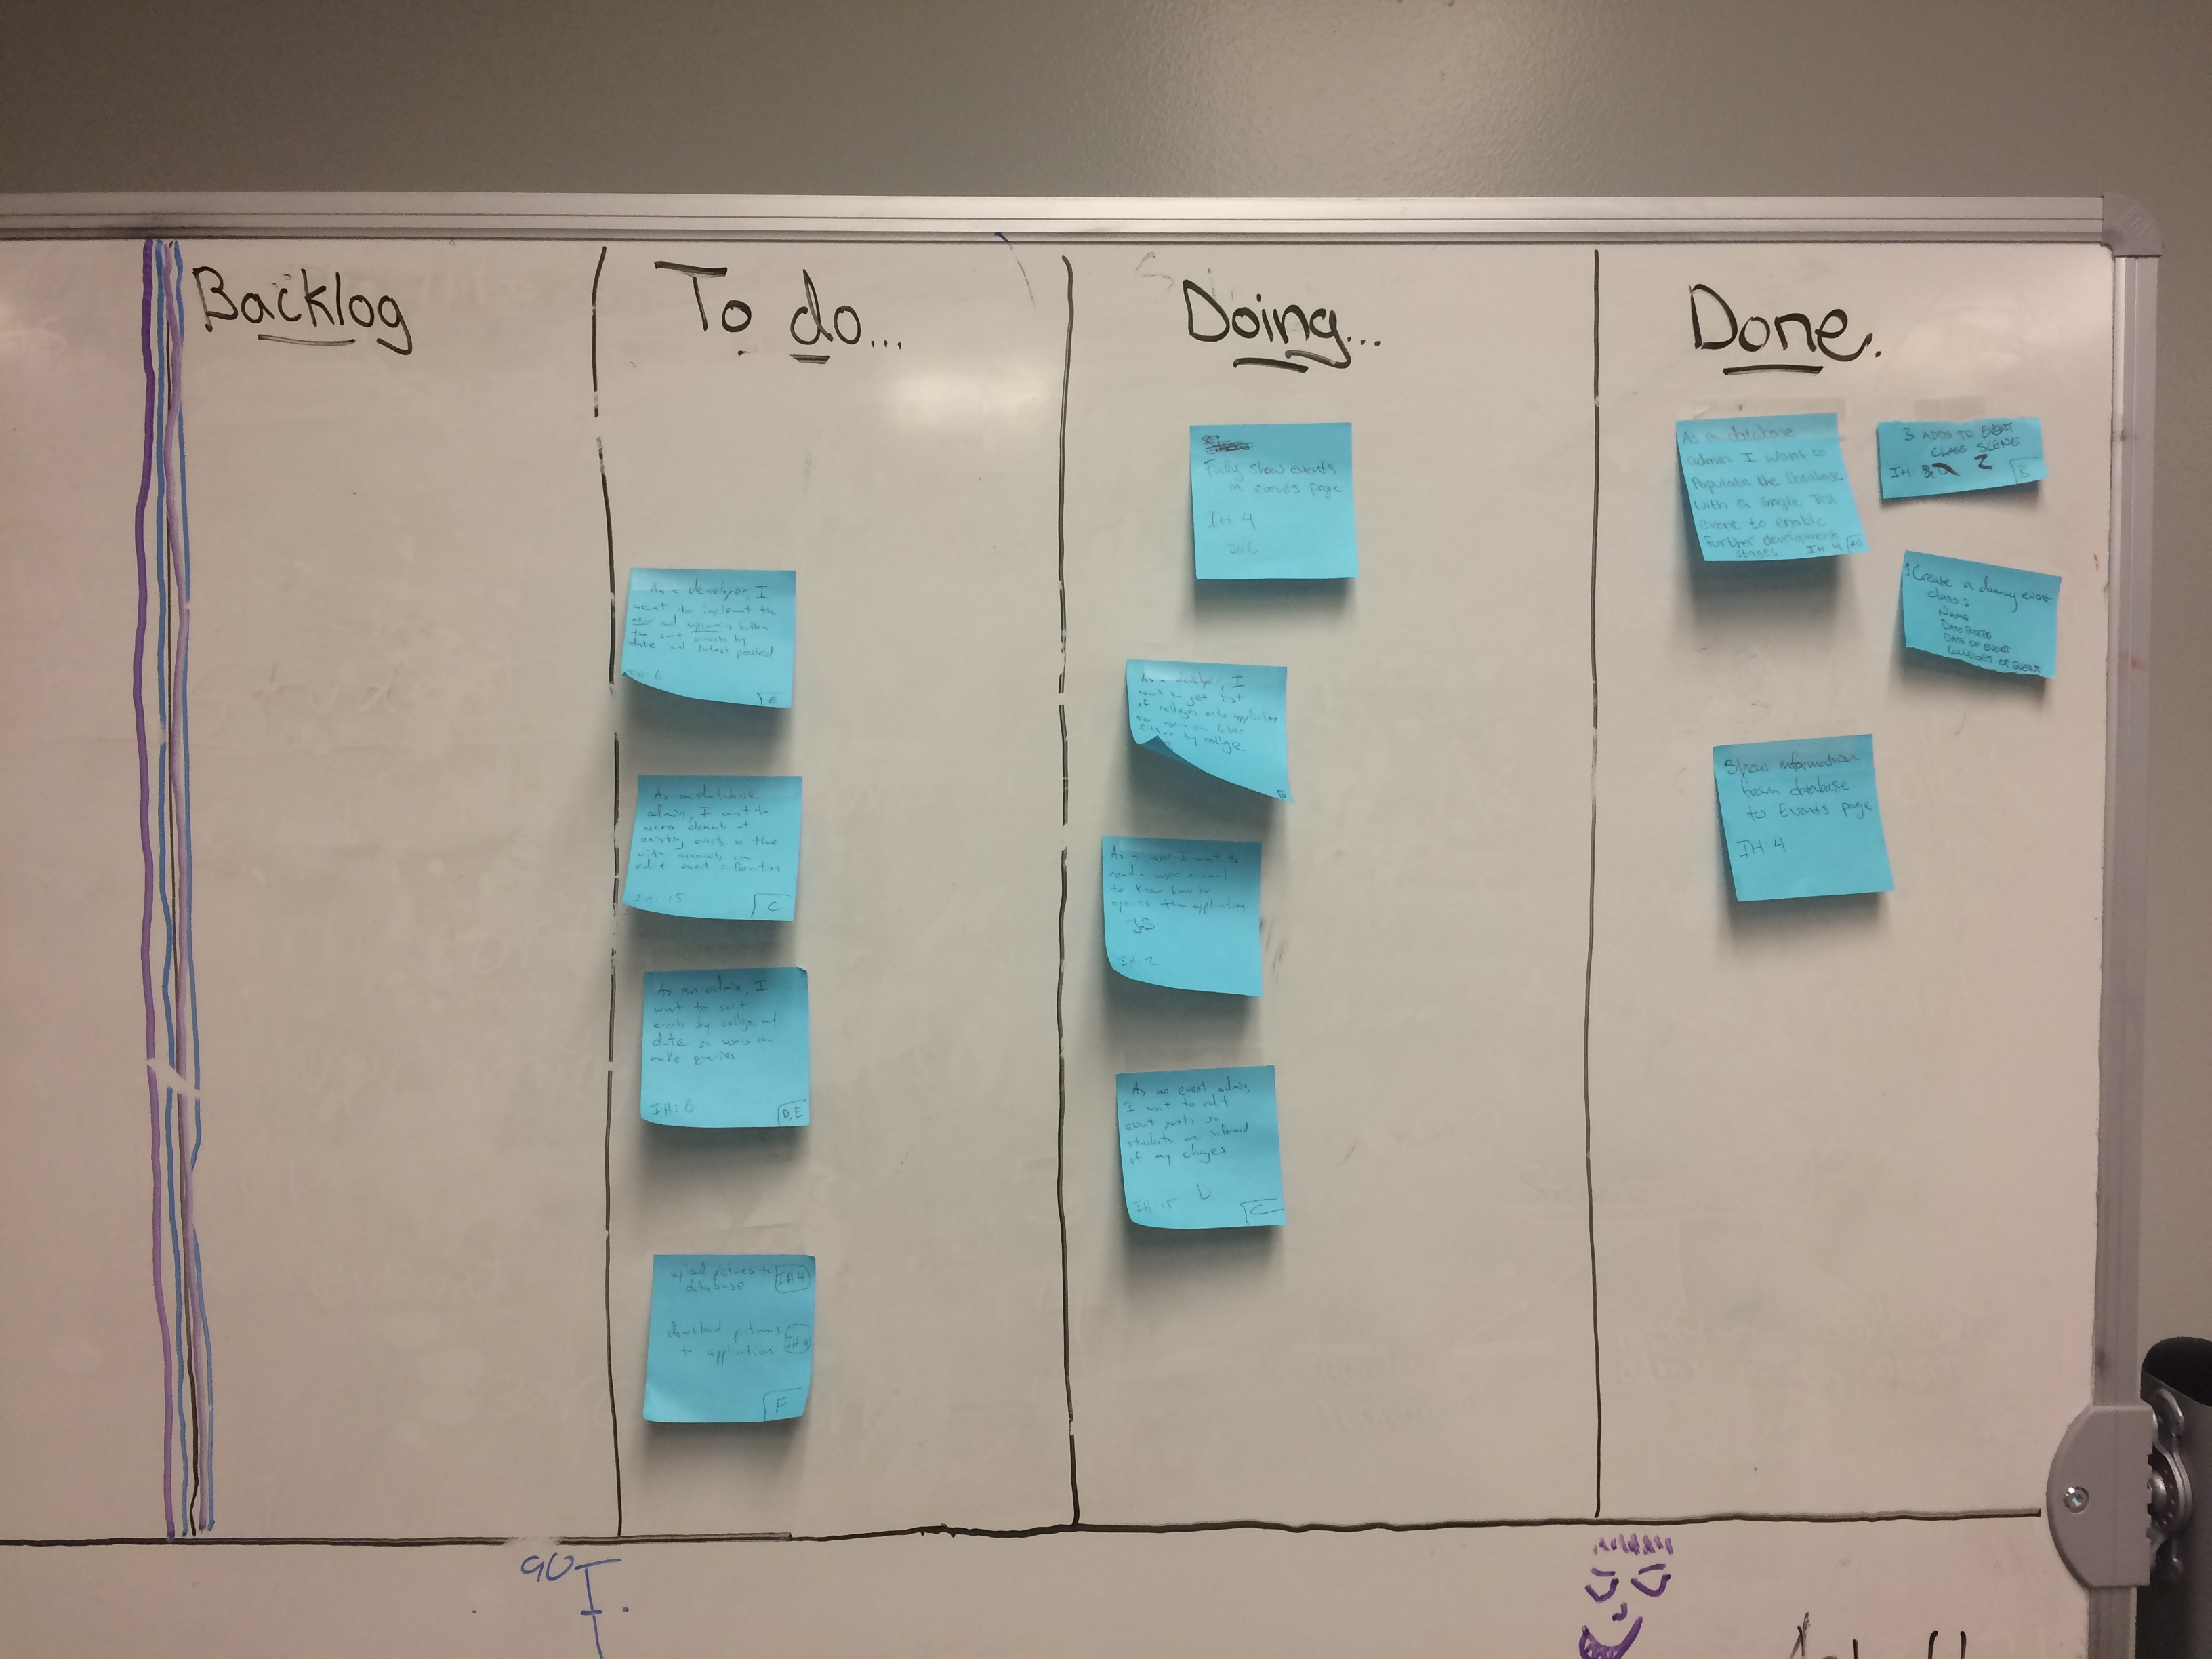 Backlog
To do...
Doing...
Done.
As a developer, I
want to implement the
new and upcoming button
to sort events by
date and latest posted
IH: 6
E
As a database
admin, I want to
elements of
existing events so that
with accounts can
edit event information
IH: 15
C
As an admin, I
want to sort
events by college and
date so users can
make queries.
IH: 6
D, E
upload pictures to
database
IH 4
download pictures
to application
F
Fully show events
in events page
IH 4
As a developer, I
want to get list
of colleges onto application
so users can later
filter by college
As a user, I want to
read a user manual
to know how to
operate the application
JS
IH: 2
As an event admin,
I want to edit
event posts so
students are informed
of my changes
D
IH: 5
C
As a database
admin I want to
Populate the Database
with a single Test
event to enable
Further development
stages
IH 4
3 ADDS TO EVENT
CLASS SCENE
IH 2
B
1 Create a dummy event
class:
NAME
DATE POSTED
DATE OF EVENT
COLLEGES OF EVENT
Show information
from database
to Events page
IH 4
90